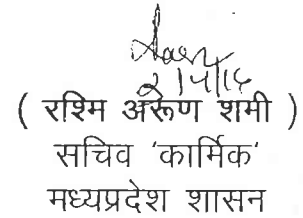 ( रश्मि अरूण शमी )
सचिव 'कार्मिक'
मध्यप्रदेश शासन